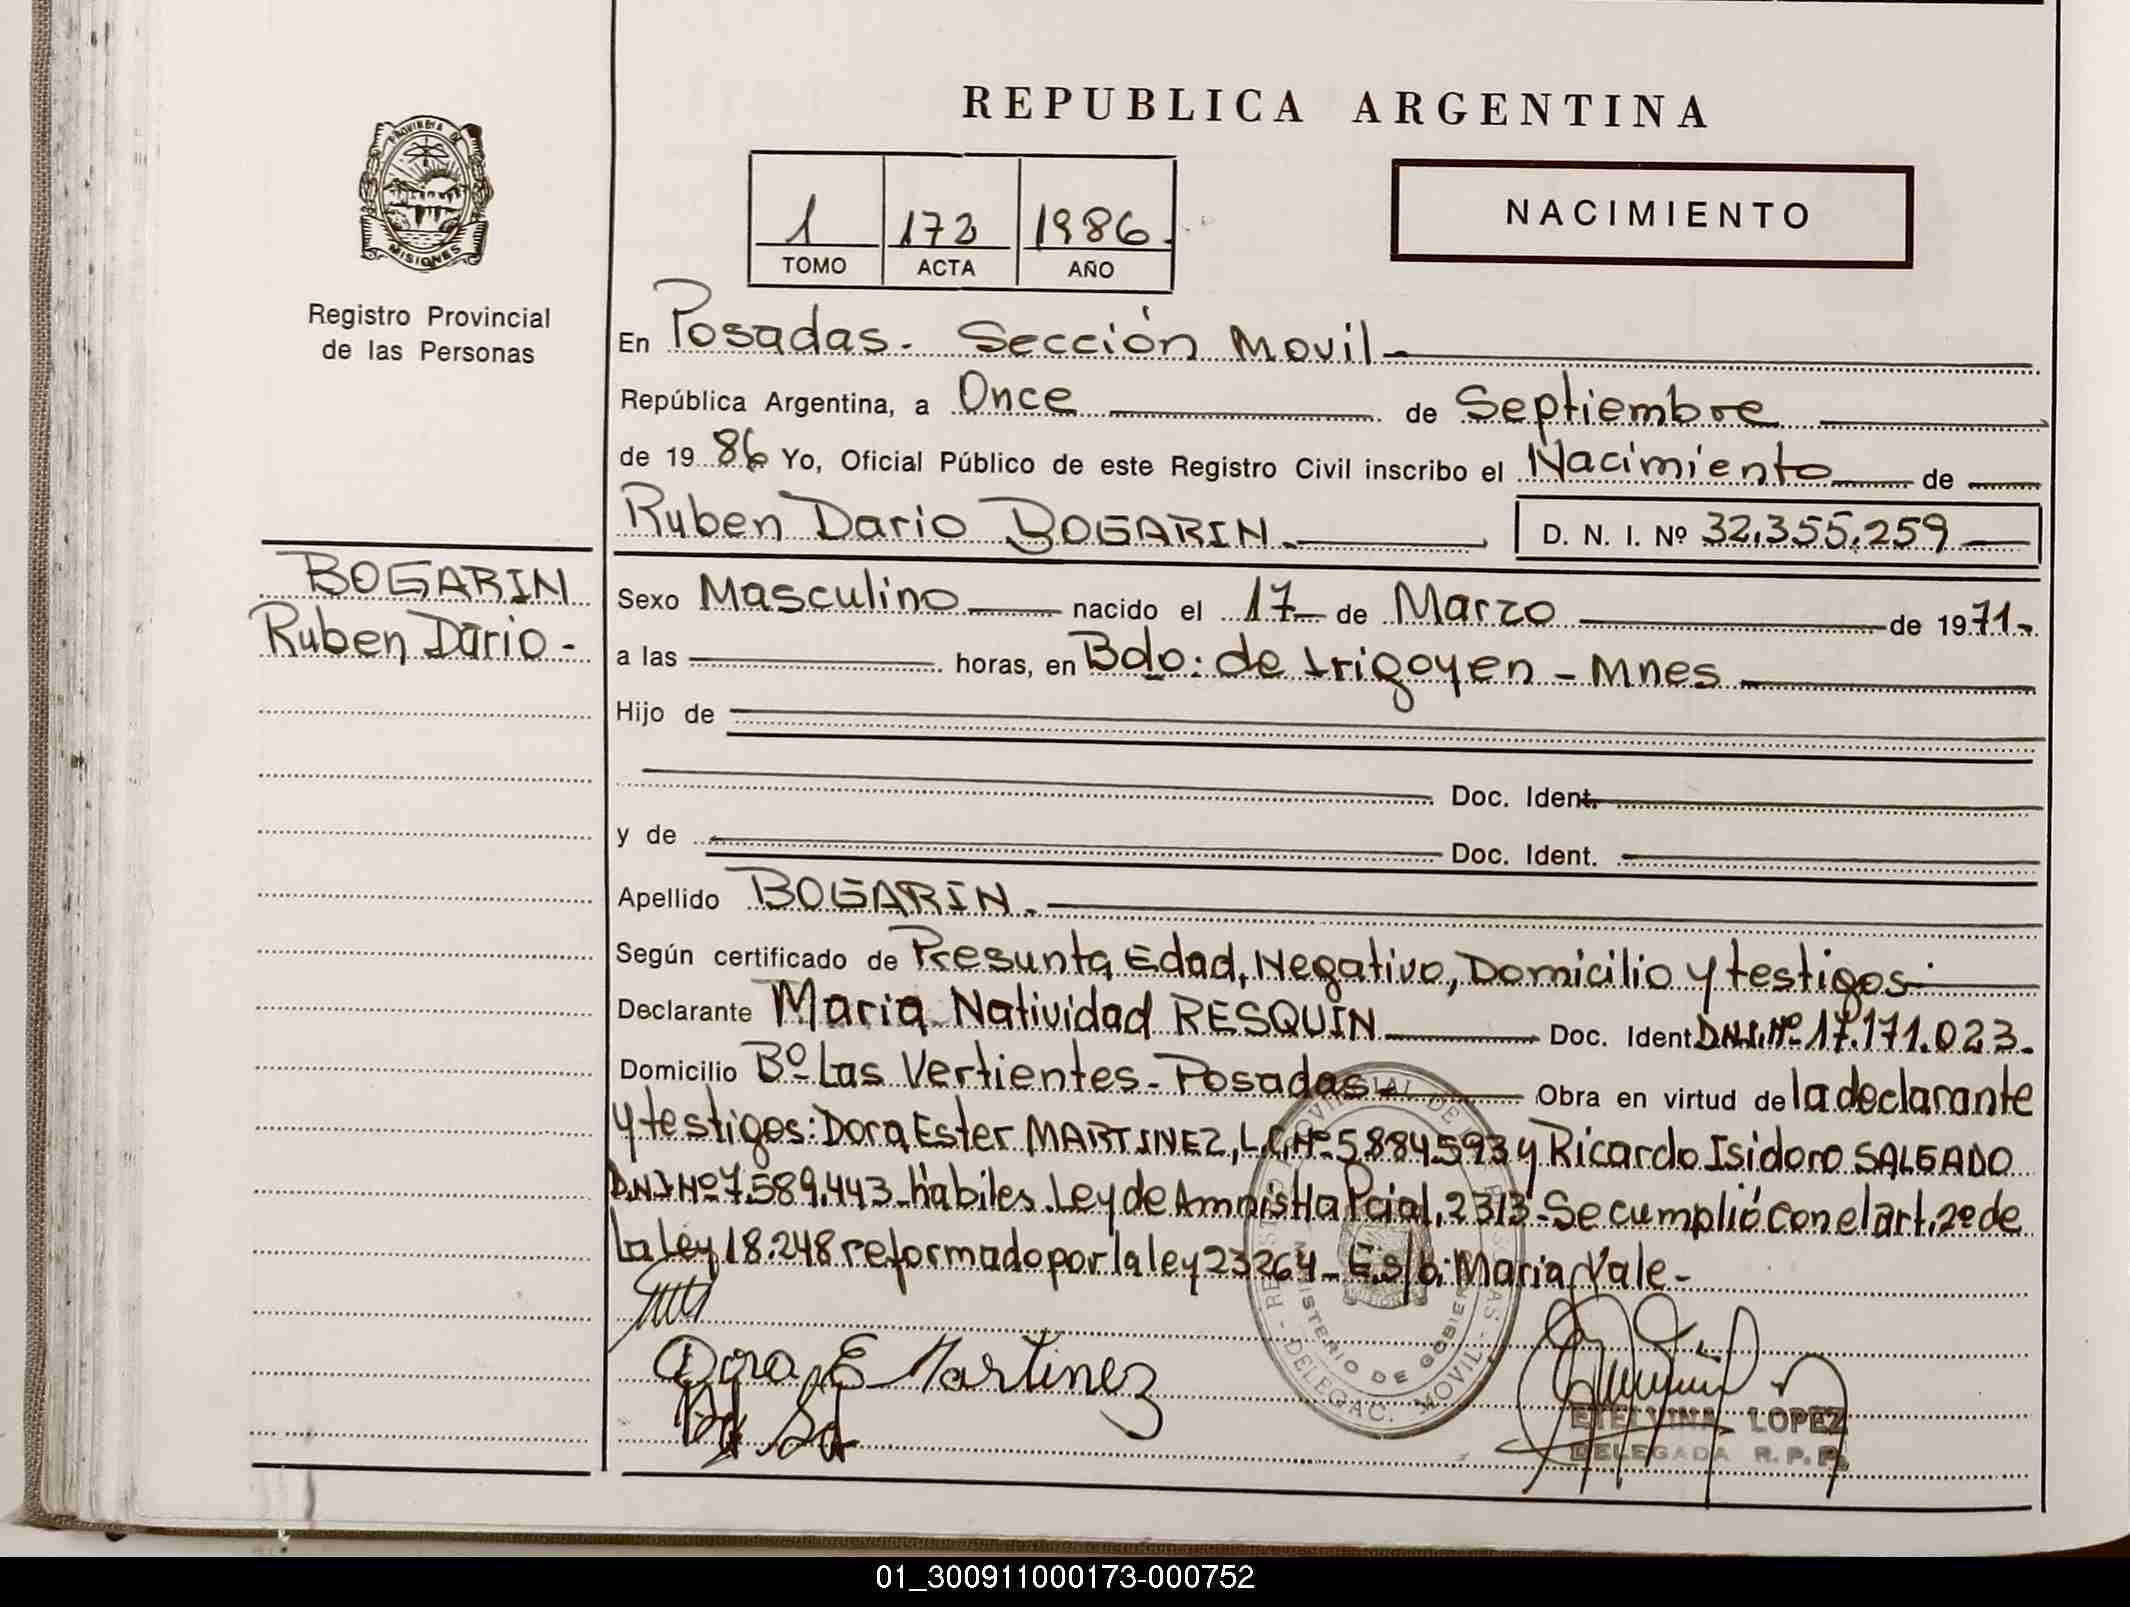 REPUBLICA ARGENTINA
PROVINCIA DE
MISIONES
Registro Provincial
de las Personas
1 172 1986.
TOMO ACTA AÑO
NACIMIENTO
En Posadas. Sección Movil
República Argentina, a Once de Septiembre
de 19 86 Yo, Oficial Público de este Registro Civil inscribo el Nacimiento de
Ruben Dario BOGARIN. D. N. I. Nº 32.355.259
BOGARIN
Ruben Dario -
Sexo Masculino nacido el 17 de Marzo de 1971.
a las horas, en Bdo: de Irigoyen - Mnes
Hijo de
Doc. Ident.
y de Doc. Ident.
Apellido BOGARIN.
Según certificado de Presunta Edad, Negativo, Domicilio y testigos.
Declarante Maria Natividad RESQUIN Doc. Ident D.N.I. Nº 17.171.023.
Domicilio Bº Las Vertientes - Posadas - Obra en virtud de la declarante
y testigos: Dora Ester MARTINEZ, L.C. Nº 5.884.593 y Ricardo Isidoro SALGADO
D.N.I Nº 7.589.443 - hábiles. Ley de Amnistia Pcial. 2313. Se cumplió con el art. 2º de
la Ley 18.248 reformado por la ley 23264 - E.s/b: Maria, Vale -
Dora E Martinez
MINISTERIO DE GOBIERNO
DELEGAC. MOVIL
ETELVINA LOPEZ
DELEGADA R. P. P.
01_300911000173-000752